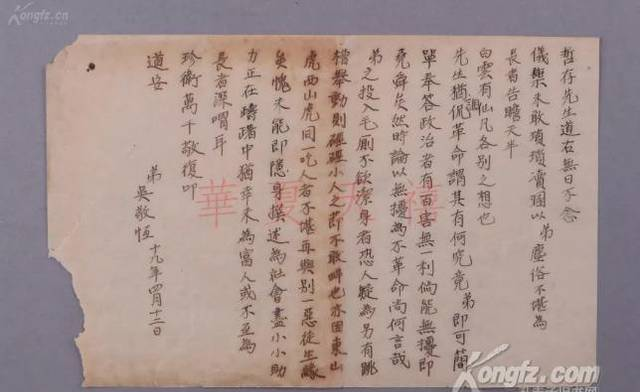 哲存先生道右無日不念
儀榘未敢瑣瑣瀆溷以弟塵俗不堪為
長者告瞻天半
白雲有仙凡各別之想也
先生猶調侃革命謂其有何究竟弟即可簡
單奉答政治者有百害無一利倘能無擾即
堯舜矣然時論以無擾為不革命尚何言哉
弟之投入毛厠不欲潔身者恐人疑為另有跳
槽舉動則硜硜小人之節不敢畔也亦因東山
虎西山虎同一吃人者不堪再與別一惡徒生緣
矣愧未能即隱身撰述為社會盡小小助
力正在躊躇中猶幸未為富人或不至為
長者深喟耳
珍衛萬千敬復叩
道安
弟吳敬恆十九年四月十二日
華夏天禧
Kongfz.cn
Kongfz.com